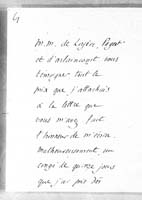 M.M. de Luzen, Piquet
et d'arlaincourt vous
temoigner tout le
prix que j'attachais
à la lettre que
vous m'avez fait
l'honneur de m'écrire.
malheureusement, un
congé de quinze jours
que j'ai pris dès